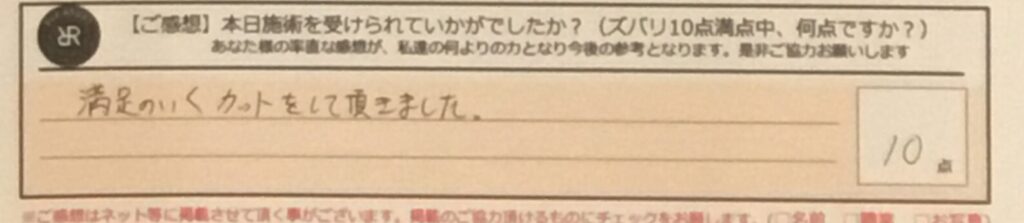 【ご感想】本日施術を受けられていかがでしたか？（ズバリ10点満点中、何点ですか？）
あなた様の率直な感想が、私達の何よりの力となり今後の参考となります。是非ご協力お願いします
満足のいくカットをして頂きました。
10点
※ご感想はネット等に掲載させて頂く事がございます。掲載のご協力頂けるものにチェックをお願します。（□名前 □職業 □お写真）